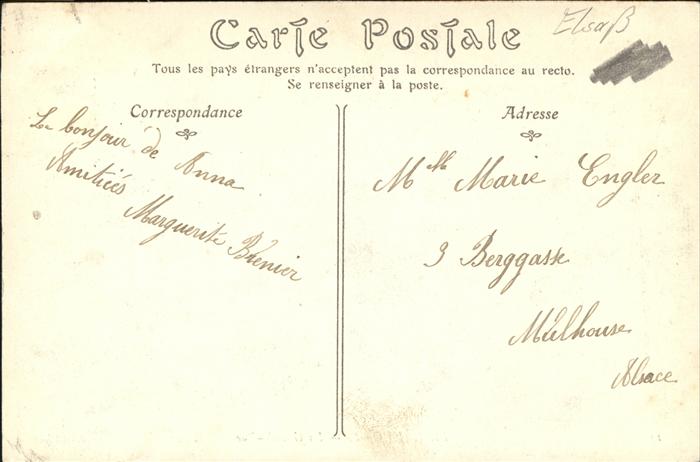 Elsaß
Carte Postale
Tous les pays étrangers n'acceptent pas la correspondance au recto.
Se renseigner à la poste.
Correspondance
Le bonjour de Anna
Amitiés
Marguerite Brenier
Adresse
Mlle Marie Engler
3 Berggasse
Mülhouse
Alsace